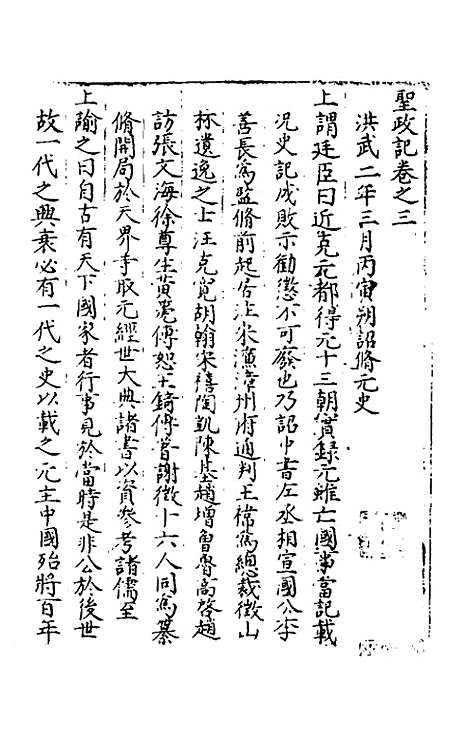 聖政記卷之三
洪武二年三月丙寅朔詔脩元史
上謂廷臣曰近克元都得元十三朝實録元雖亡國事當記載
況史記成敗示勸懲不可廢也乃詔中書左丞相宣國公李
善長為監脩前起居注宋濂漳州府通判王禕為總裁徵山
林遺逸之士汪克寬胡翰宋禧陶凱陳基趙壎曾魯高啓趙
訪張文海徐尊生黃箎傅恕王錡傅著謝徽十六人同為纂
脩開局於天界寺取元經世大典諸書以資參考諸儒至
上諭之曰自古有天下國家者行事見於當時是非公於後世
故一代之興衰必有一代之史以載之元主中國殆將百年